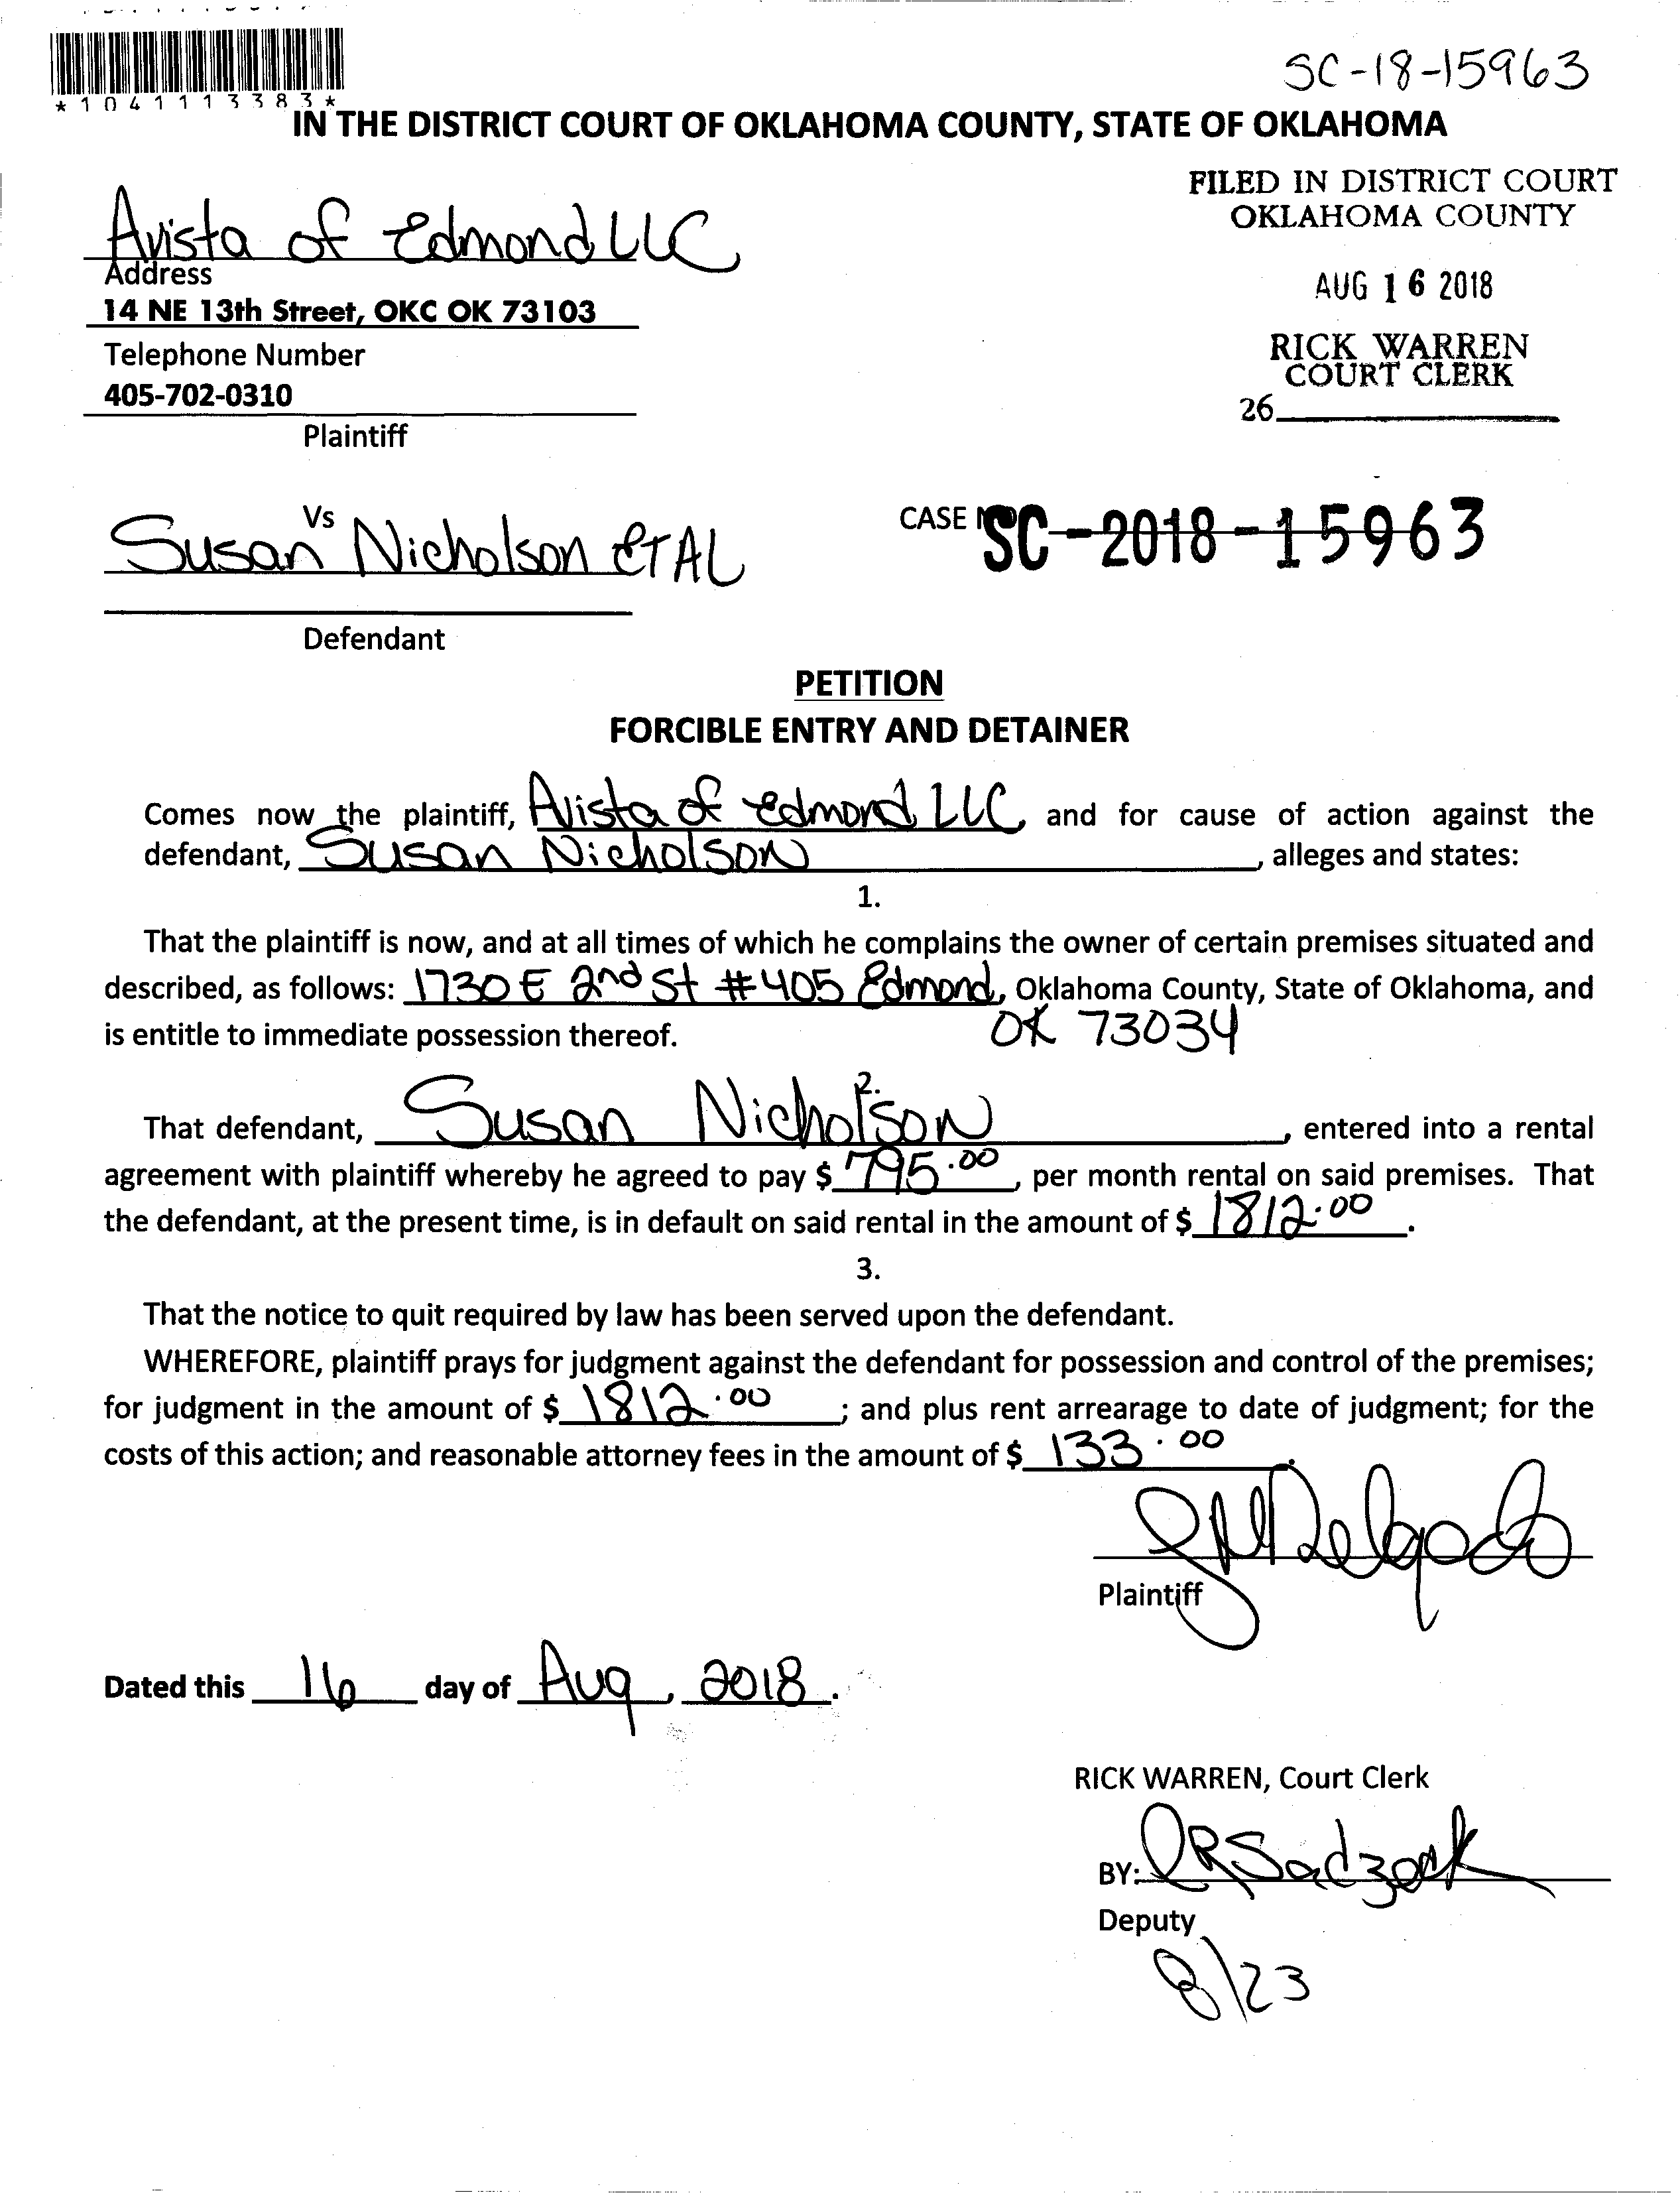 SC-18-15963
*1041113383*
IN THE DISTRICT COURT OF OKLAHOMA COUNTY, STATE OF OKLAHOMA
FILED IN DISTRICT COURT
OKLAHOMA COUNTY
AUG 16 2018
RICK WARREN
COURT CLERK
26
Avista of Edmond LLC
Address
14 NE 13th Street, OKC OK 73103
Telephone Number
405-702-0310
Plaintiff
Vs
Susan Nicholson ETAL
CASE SC-2018-15963
Defendant
PETITION
FORCIBLE ENTRY AND DETAINER
Comes now the plaintiff, Avista of Edmond LLC, and for cause of action against the
defendant, Susan Nicholson, alleges and states:
1.
That the plaintiff is now, and at all times of which he complains the owner of certain premises situated and
described, as follows: 1730 E 2nd St #405 Edmond, Oklahoma County, State of Oklahoma, and
is entitle to immediate possession thereof. OK 73034
2.
That defendant, Susan Nicholson, entered into a rental
agreement with plaintiff whereby he agreed to pay $ 795.00, per month rental on said premises. That
the defendant, at the present time, is in default on said rental in the amount of $ 1812.00.
3.
That the notice to quit required by law has been served upon the defendant.
WHEREFORE, plaintiff prays for judgment against the defendant for possession and control of the premises;
for judgment in the amount of $ 1812.00; and plus rent arrearage to date of judgment; for the
costs of this action; and reasonable attorney fees in the amount of $ 133.00.
Delgado
Plaintiff
Dated this 16 day of Aug, 2018.
RICK WARREN, Court Clerk
BY:
Deputy
8/23